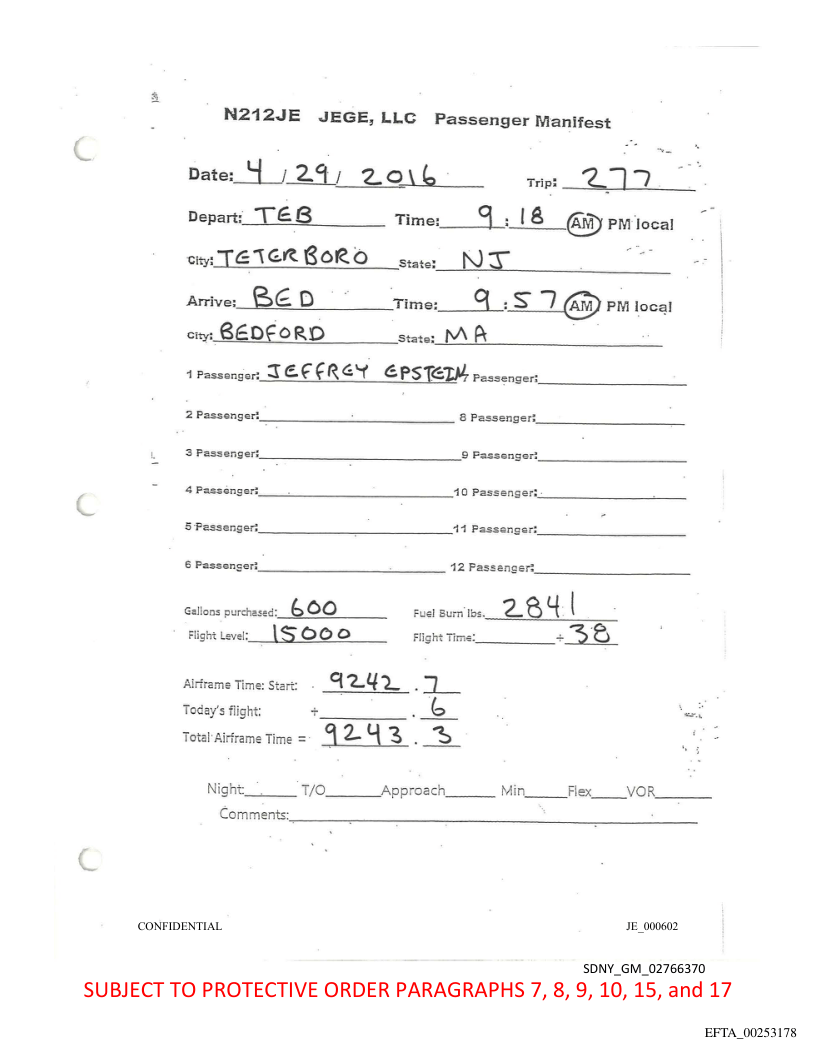 N212JE JEGE, LLC Passenger Manifest
Date: 4 / 29 / 2016 Trip: 277
Depart: TEB Time: 9 : 18 AM PM local
City: TETERBORO State: NJ
Arrive: BED Time: 9 : 57 AM PM local
City: BEDFORD State: MA
1 Passenger: JEFFREY EPSTEIN 7 Passenger:
2 Passenger: 8 Passenger:
3 Passenger: 9 Passenger:
4 Passenger: 10 Passenger:
5 Passenger: 11 Passenger:
6 Passenger: 12 Passenger:
Gallons purchased: 600 Fuel Burn lbs. 2841
Flight Level: 15000 Flight Time: + 38
Airframe Time: Start: 9242 . 7
Today's flight: + . 6
Total Airframe Time = 9243 . 3
Night: T/O Approach Min Flex VOR
Comments:
CONFIDENTIAL JE_000602
SDNY_GM_02766370
SUBJECT TO PROTECTIVE ORDER PARAGRAPHS 7, 8, 9, 10, 15, and 17
EFTA_00253178